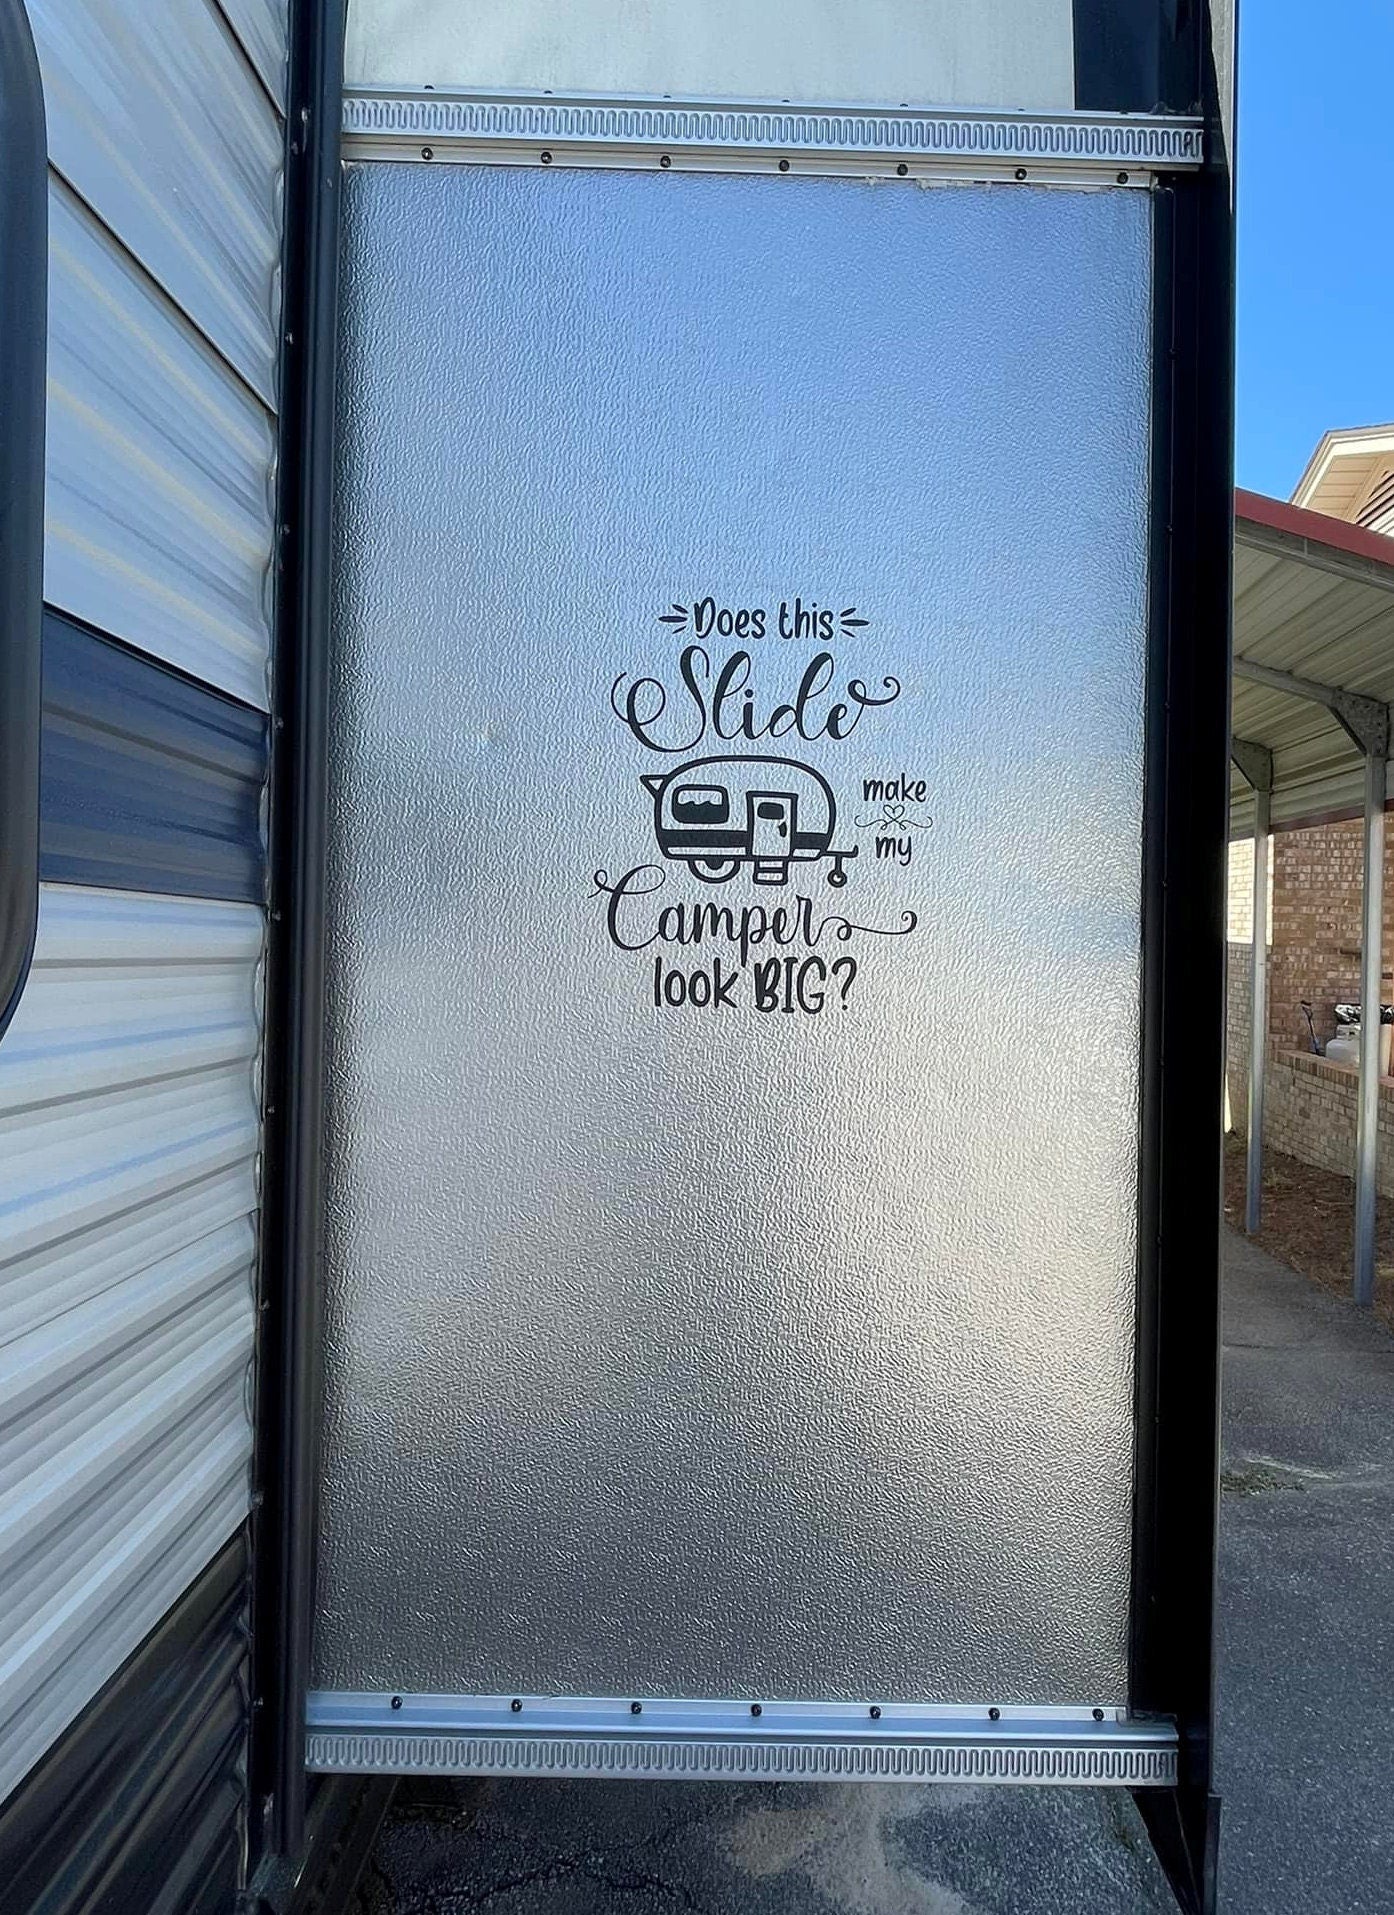 Does this
Slide
make
my
Camper
look BIG?